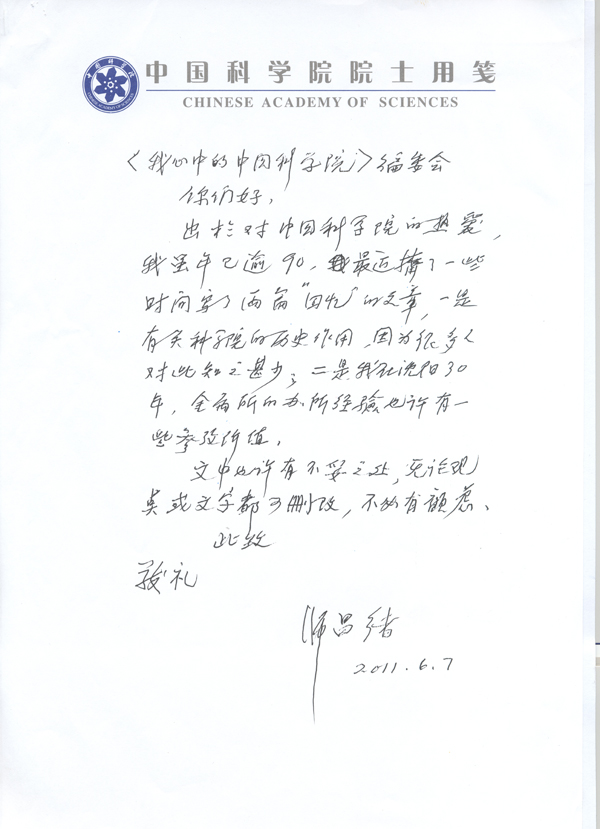 中国科学院院士用笺
CHINESE ACADEMY OF SCIENCES
《我心中的中国科学院》编委会
你们好,
出于对中国科学院的热爱,
我虽年已逾90,我最近搞了一些
时间写了两篇“回忆”的文章,一是
有关科学院的历史作用,因为很多人
对此知之甚少;二是我在沈阳30
年,金属所的办所经验也许有一
些参考价值。
文中也许有不妥之处,无论观
点或文字都可删改,不必有顾虑、
此致
敬礼
师昌绪
2011.6.7